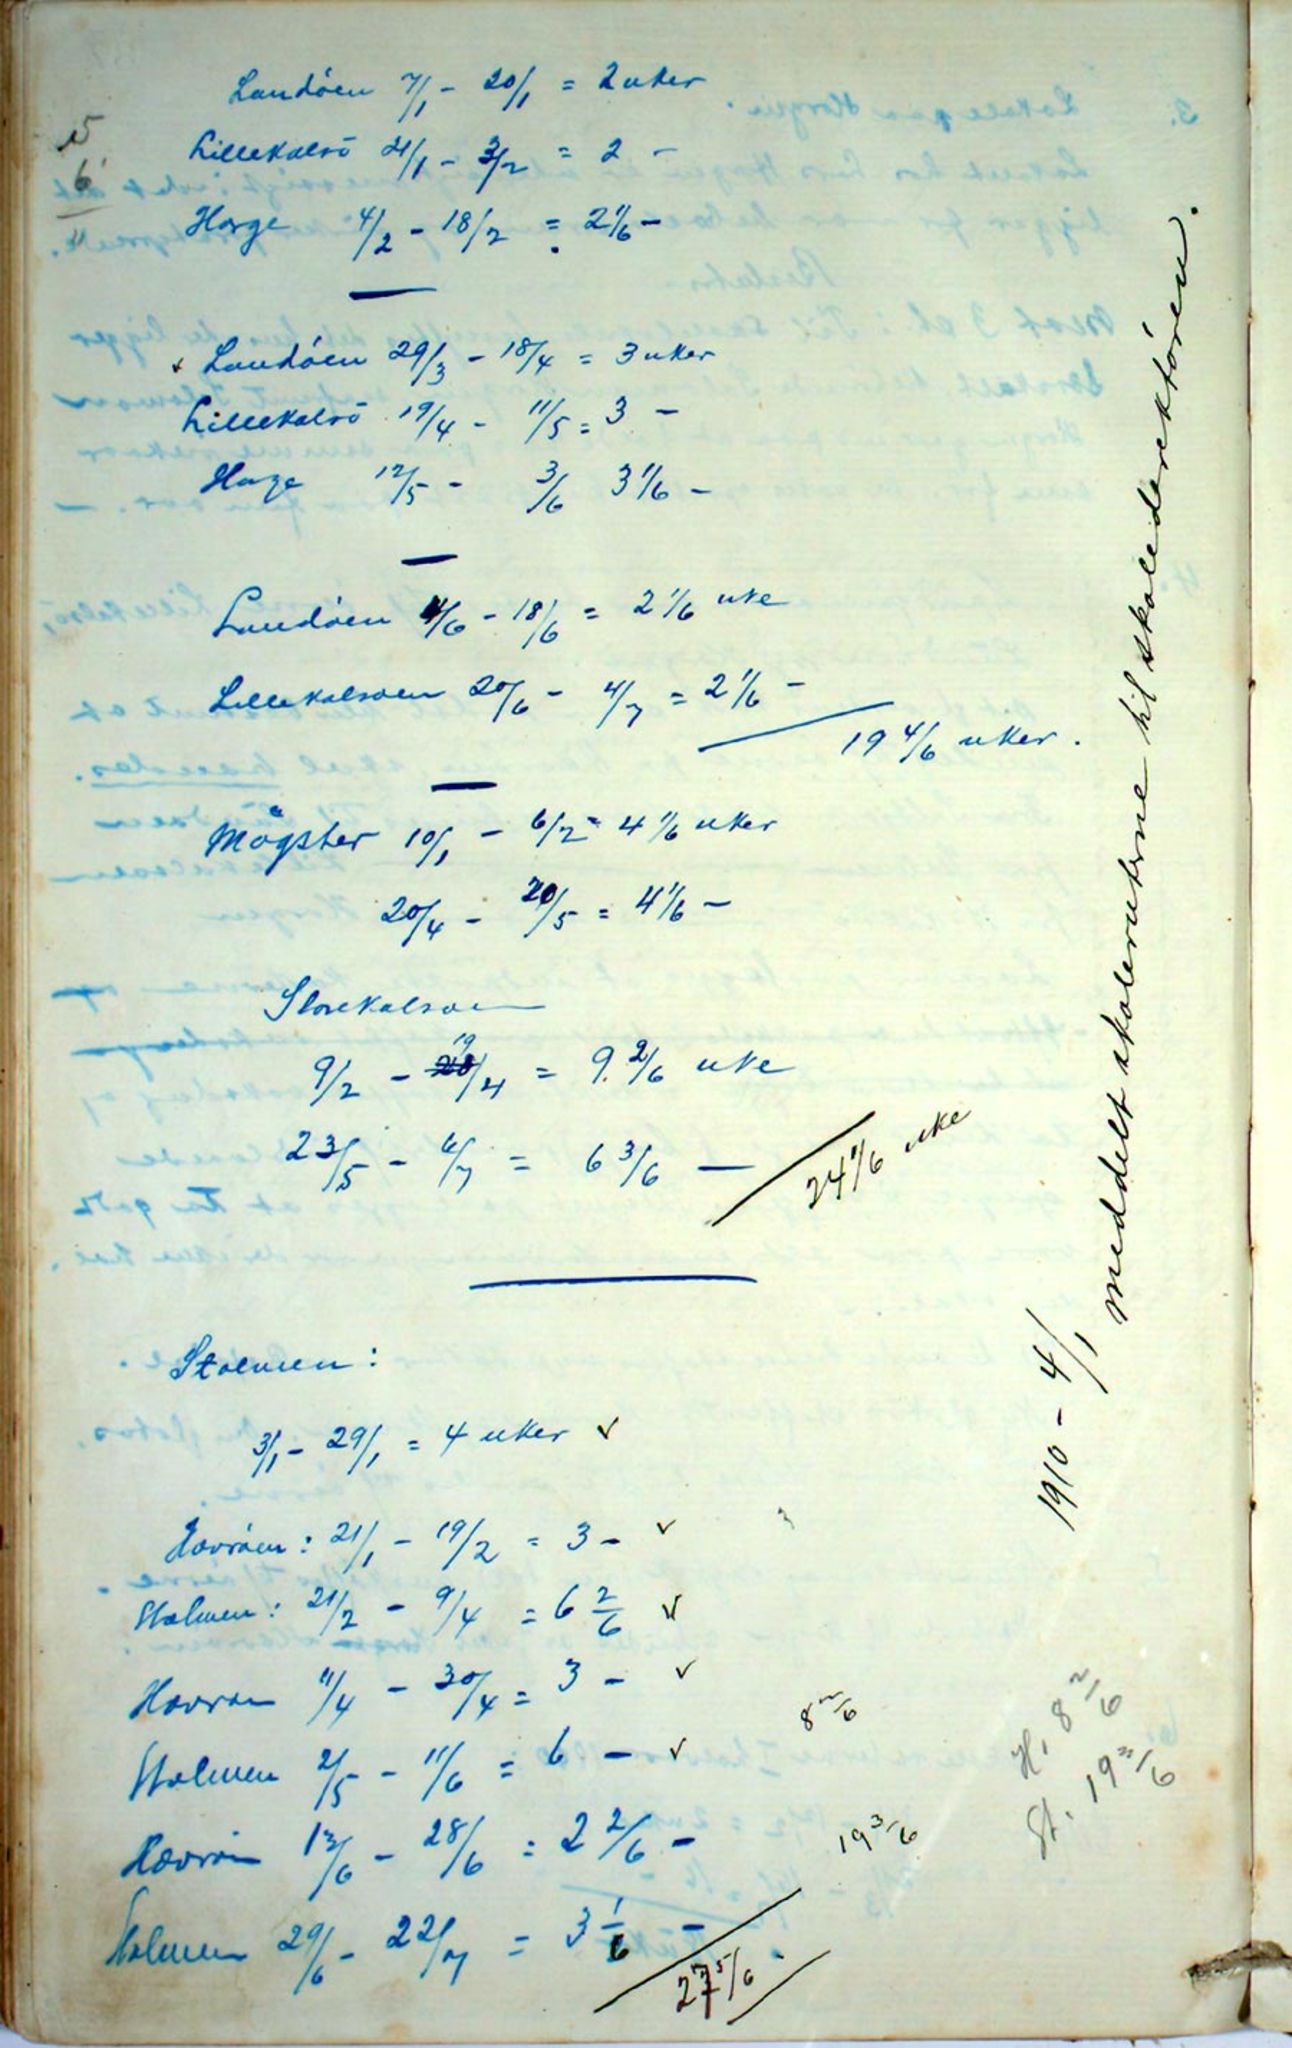 Landöen 7/1 - 20/1 = 2 uker
Lillekalsö 21/1 - 3/2 = 2 -
Horge 4/2 - 18/2 = 2 1/6 -
Landöen 29/3 - 18/4 = 3 uker
Lillekalsö 19/4 - 11/5 = 3 -
Horge 12/5 - 3/6 3 1/6 -
Landöen 4/6 - 18/6 = 2 1/6 uke
Lillekalsoen 20/6 - 4/7 = 2 1/6 -
19 4/6 uker.
Mögster 10/1 - 6/2 = 4 1/6 uker
20/4 - 20/5 = 4 1/6 -
Storekalsoen
9/2 - 19/4 = 9 2/6 uke
23/5 - 6/7 = 6 3/6 -
24 1/6 uke
Stolmen:
3/1 - 29/1 = 4 uker ✓
Hovröen: 21/1 - 19/2 = 3 - ✓
Stolmen: 21/2 - 9/4 = 6 2/6 ✓
Hovröen 11/4 - 30/4 = 3 - ✓
Stolmen 2/5 - 11/6 = 6 - ✓
8 2/6
Hovröen 13/6 - 28/6 = 2 2/6 -
19 3/6
Stolmen 29/6 - 22/7 = 3 1/6 -
27 5/6
H. 8 2/6
St. 19 3/6
1910 - 4/1 meddelt skoleruterne til skoledirektören.